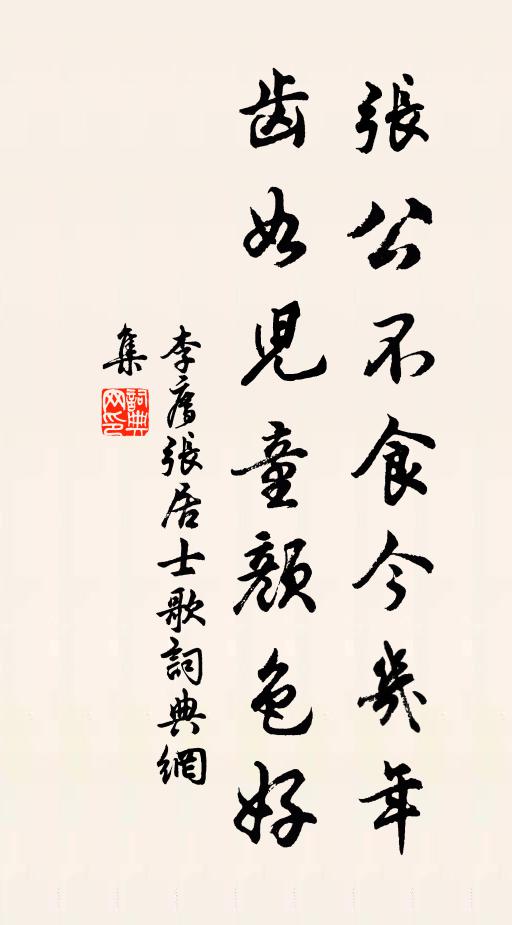 張公不食今幾年
齿如児童顏色好
李廌張居士歌詞典網
集
詞典
网印